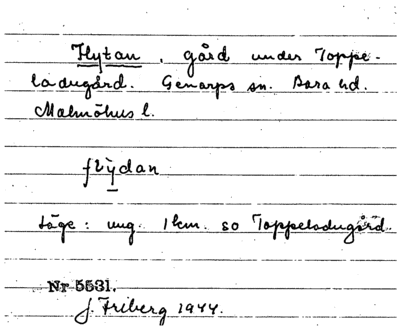 Flytan, gård under Toppe-
ladugård. Genarps sn. Bara hd.
Malmöhus l.
flỳdan
Läge: ung. 1 km. so Toppeladugård.
Nr 5531.
J. Friberg 1944.